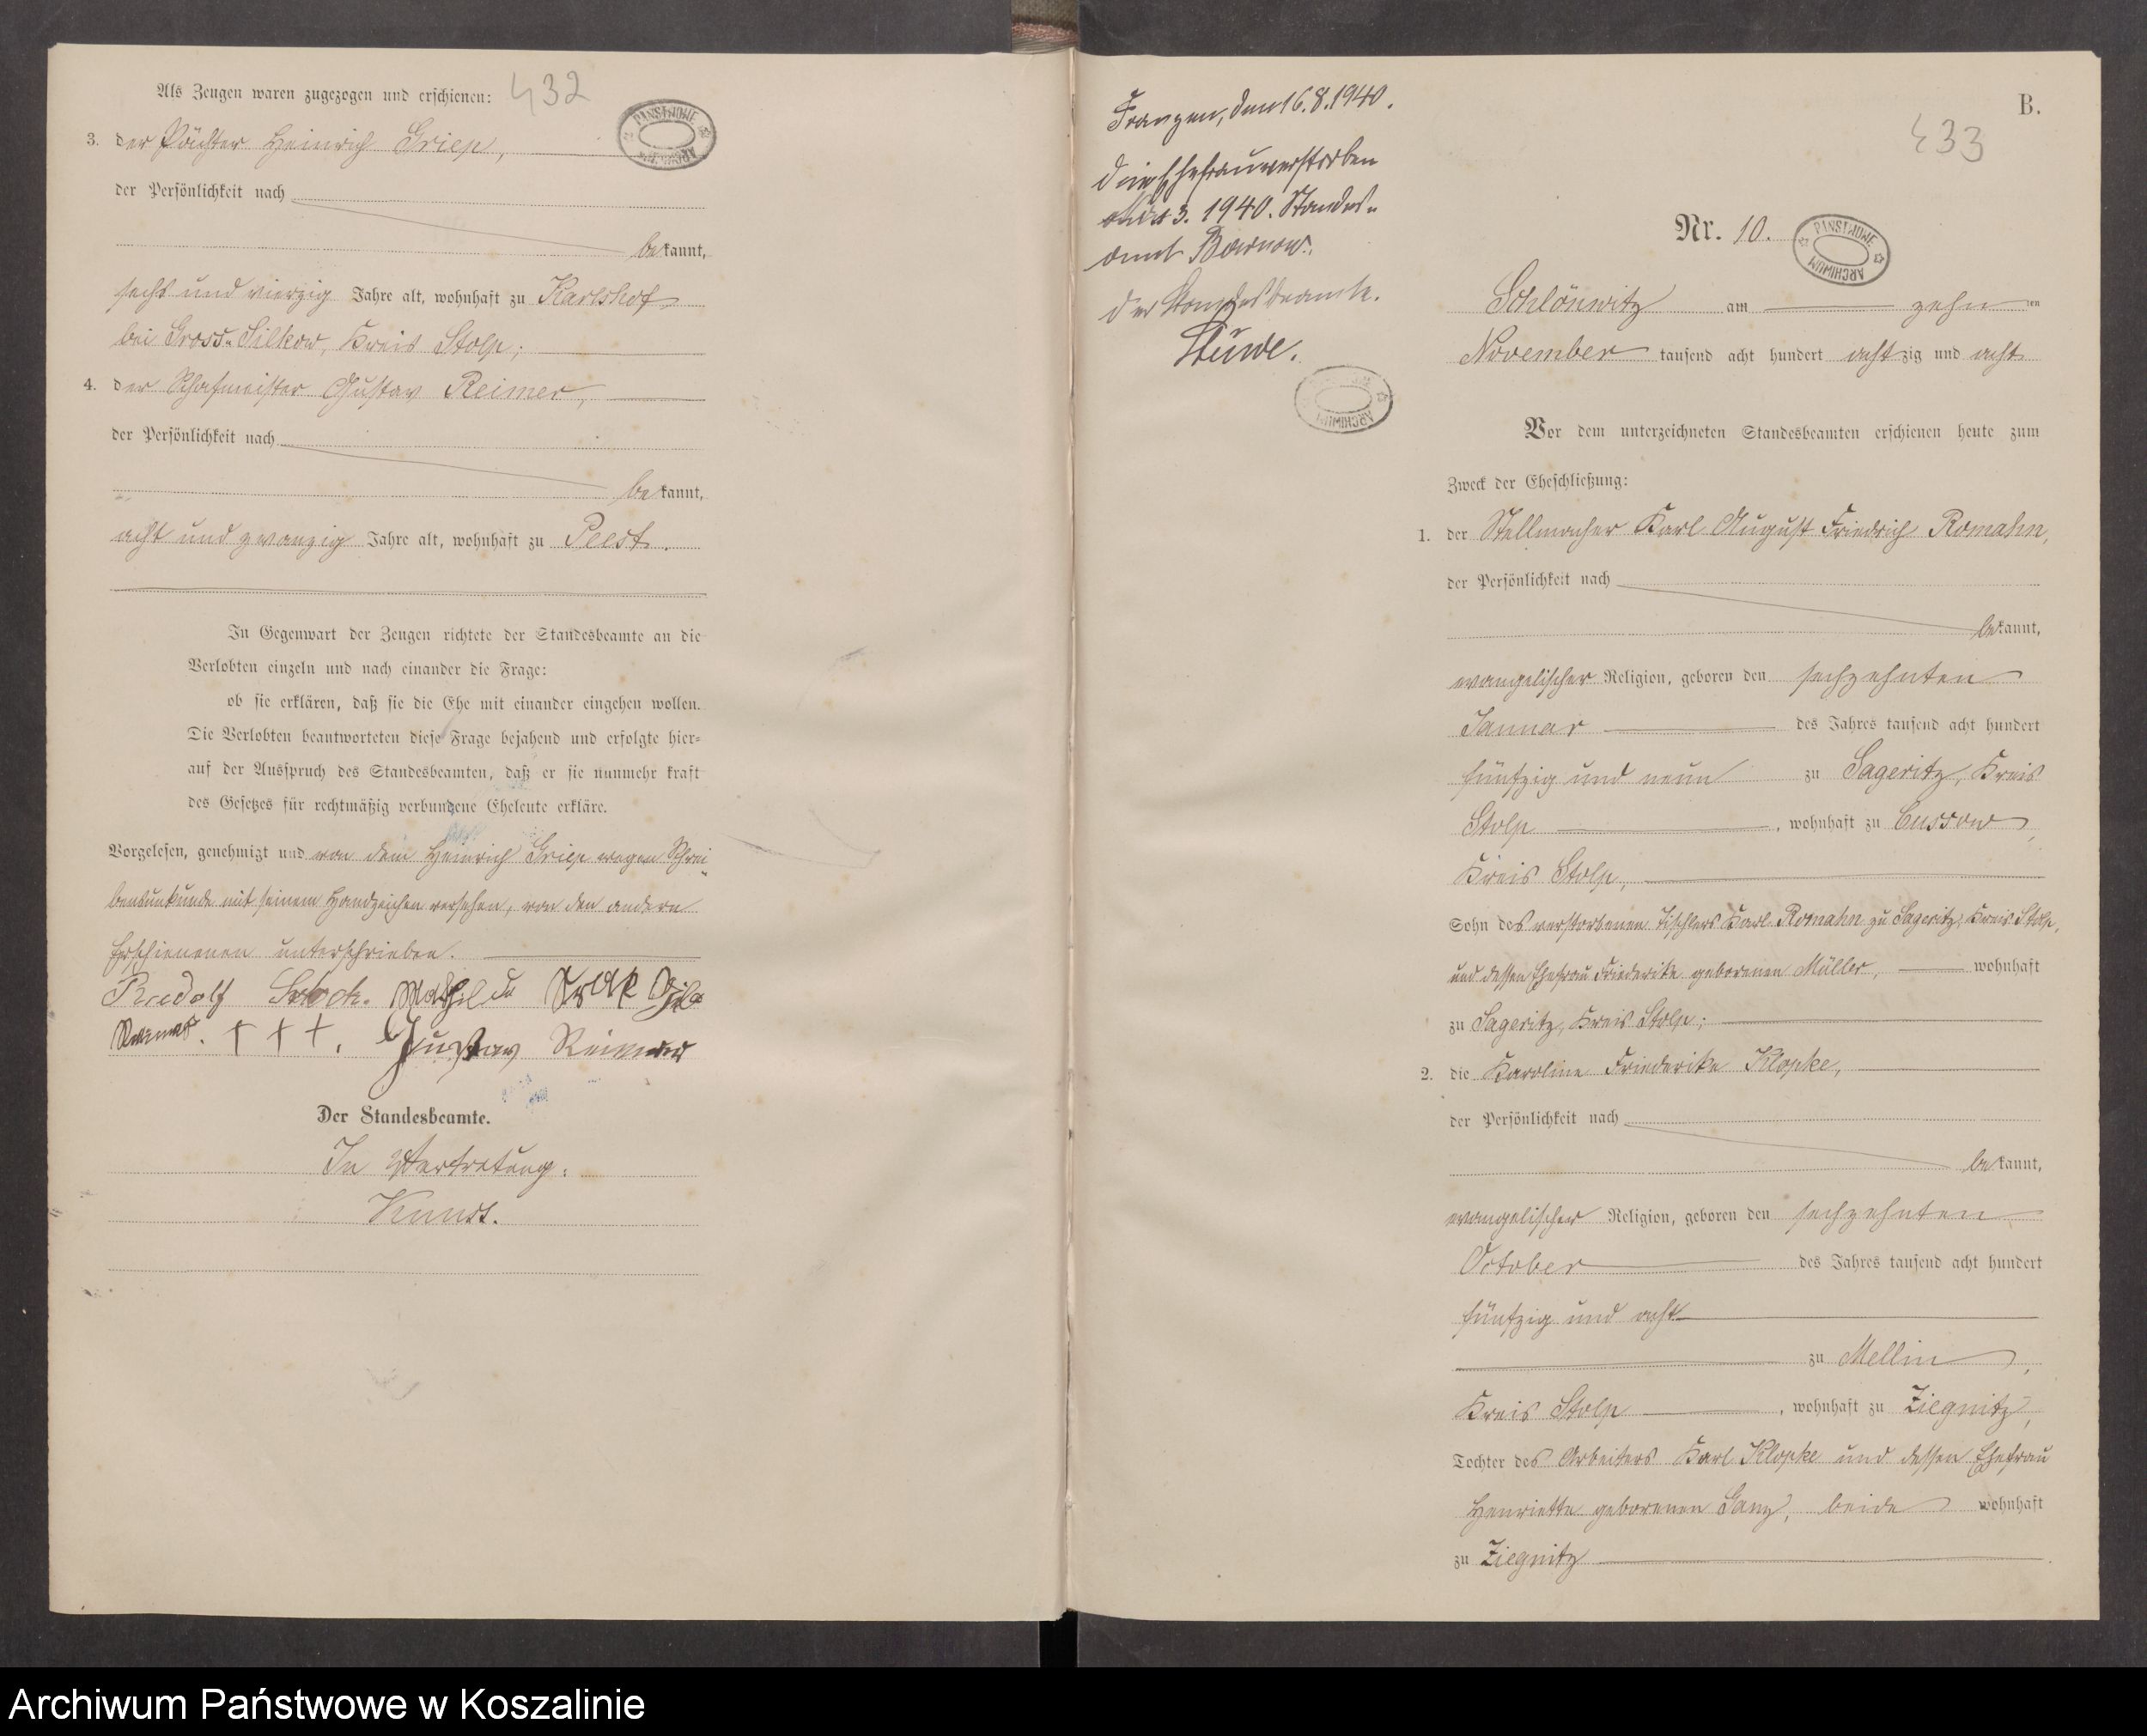 Als Zeugen waren zugezogen und erschienen:
432
PAŃSTWOWE
ARCHIWUM
3. der Pächter Heinrich Griep,
der Persönlichkeit nach
bekannt,
sechs und vierzig Jahre alt, wohnhaft zu Karlshof
bei Gross-Silkow, Kreis Stolp;
4. der Schafmeister Gustav Reimer,
der Persönlichkeit nach
bekannt,
acht und zwanzig Jahre alt, wohnhaft zu Peest.
In Gegenwart der Zeugen richtete der Standesbeamte an die
Verlobten einzeln und nach einander die Frage:
ob sie erklären, daß sie die Ehe mit einander eingehen wollen.
Die Verlobten beantworteten diese Frage bejahend und erfolgte hier=
auf der Ausspruch des Standesbeamten, daß er sie nunmehr kraft
des Gesetzes für rechtmäßig verbundene Eheleute erkläre.
Vorgelesen, genehmigt und von dem Heinrich Griep wegen Schrei
bensunkunde mit seinem Handzeichen versehen, von den andern
Erschienenen unterschrieben.
Mathilde
+ + +. Gustav Reimer
Der Standesbeamte.
In Vertretung:
Franzen, den 16.8.1940.
die Ehefrau verstorben
3. 1940. Standes-
amt Barnow.
der Standesbeamte.
Stüwe.
ARCHIWUM
B.
433
Nr. 10.
PAŃSTWOWE
ARCHIWUM
Schlönwitz am zehnten
November tausend acht hundert achtzig und acht
Vor dem unterzeichneten Standesbeamten erschienen heute zum
Zweck der Eheschließung:
1. der Stellmacher Karl August Friedrich Romahn,
der Persönlichkeit nach
bekannt,
evangelischer Religion, geboren den sechzehnten
Januar des Jahres tausend acht hundert
fünfzig und neun zu Sageritz, Kreis
Stolp, wohnhaft zu Cussow,
Kreis Stolp,
Sohn des verstorbenen Tischlers Karl Romahn zu Sageritz, Kreis Stolp,
und dessen Ehefrau Friederike geborenen Müller, wohnhaft
zu Sageritz, Kreis Stolp;
2. die Karoline Friederike Klopke,
der Persönlichkeit nach
bekannt,
evangelischer Religion, geboren den sechzehnten
October des Jahres tausend acht hundert
fünfzig und acht
zu Mellin,
Kreis Stolp, wohnhaft zu Ziegnitz,
Tochter des Arbeiters Karl Klopke und dessen Ehefrau
Henriette geborenen Ganz, beide wohnhaft
zu Ziegnitz
Archiwum Państwowe w Koszalinie